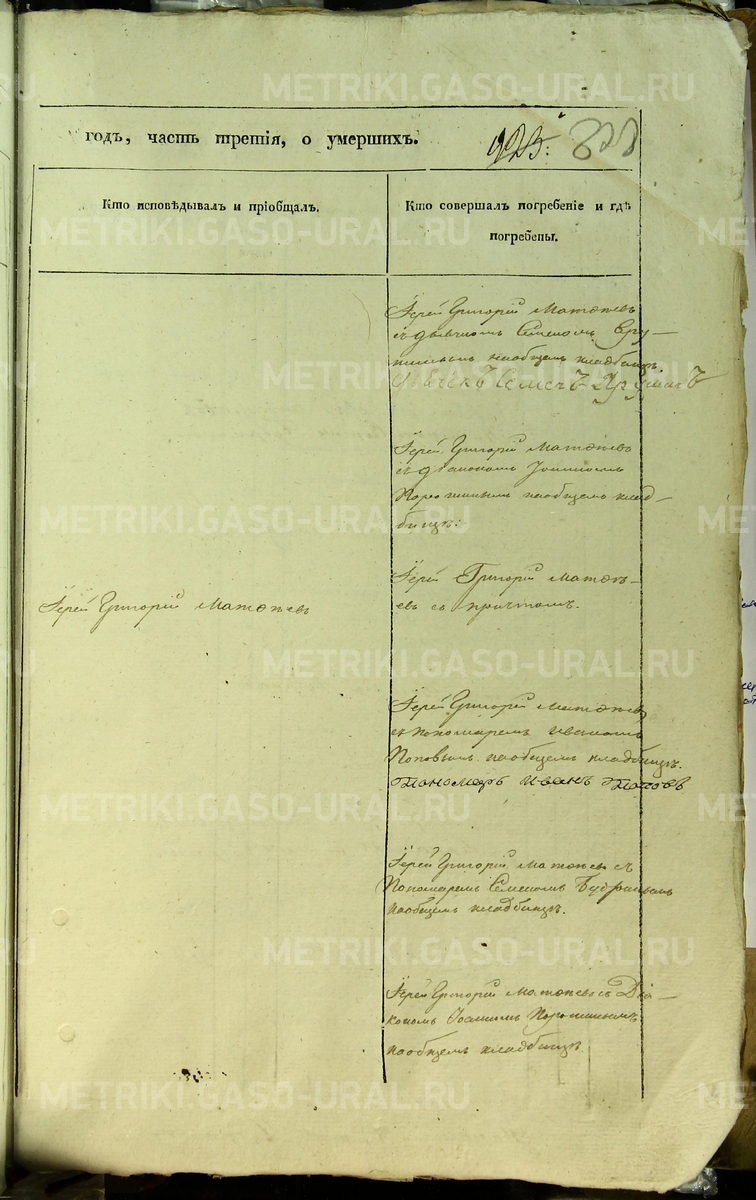 METRIKI.GASO-URAL.RU
годъ, часть третія, о умершихъ.
925. 828
Кто исповѣдывалъ и пріобщалъ.
Кто совершалъ погребеніе и гдѣ
погребены.
Іерей Григорій Матѳѣевъ
съ дьячкомъ Семеномъ
наобщемъ кладбищѣ.
Іерей Григорій Матѳѣевъ
съ діакономъ Іоанномъ
Порошинымъ наобщемъ клад-
бищѣ.
Іерей Григорій Матѳѣевъ
Іерей Григорій Матѳѣ-
евъ съ причтомъ.
Іерей Григорій Матѳѣевъ
съ пономаремъ Иваномъ
Поповымъ наобщемъ кладбищѣ.
Пономарь Иванъ Поповъ
Іерей Григорій Матѳѣевъ съ
Пономаремъ Семеномъ
наобщемъ кладбищѣ.
Іерей Григорій Матѳѣевъ съ Діа-
кономъ Іоанномъ Порошинымъ
наобщемъ кладбищѣ.